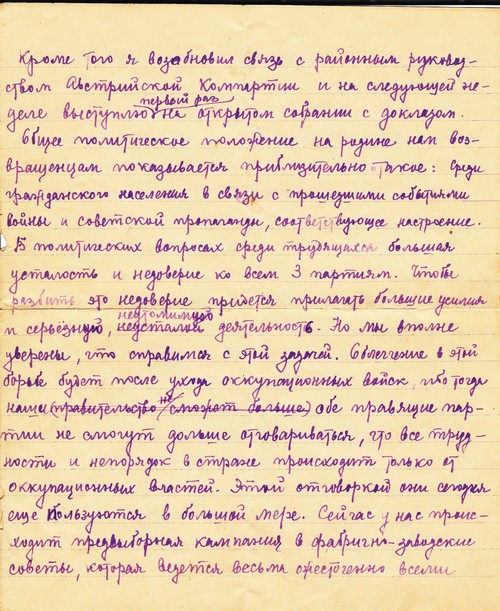 Кроме того я возобновил связь с районным руковод-
ством Австрийской Компартии и на следующей не-
первый раз
деле выступлю на открытом собрании с докладом.
Общее политическое положение на родине нам воз-
вращенцам показывается приблизительно такое: Среди
гражданского населения в связи с прошедшими событиями
войны и советской пропаганды, соответствующее настроение.
В политических вопросах среди трудящихся большая
усталость и недоверие ко всем 3 партиям. Чтобы
разбить это недоверие придется прилагать большие усилия
неутомимую
и серьёзную, неусталой деятельность. Но мы вполне
уверены, что справимся с этой задачей. Облегчение в этой
борьбе будет после ухода оккупационных войск, ибо тогда
не
наши (правительство сможет больше) обе правящие пар-
тии не смогут дольше отговариваться, что все труд-
ности и непорядок в стране происходит только от
оккупационных властей. Этой отговоркой они сегодня
еще пользуются в большой мере. Сейчас у нас проис-
ходит предвыборная кампания в фабрично-заводские
советы, которая ведется весьма ожесточенно всеми